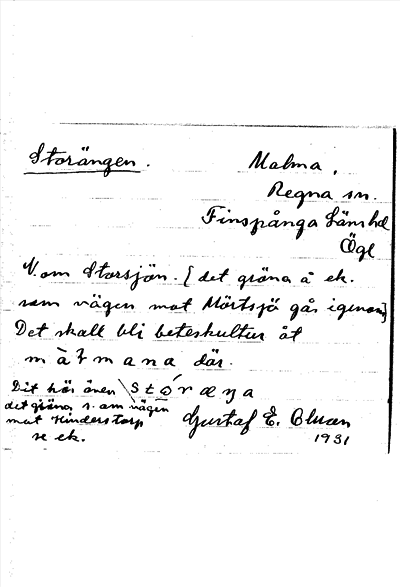 Storängen.
Malma,
Regna sn.
Finspånga Länshd
Ögl
V. om Storsjön. [det gröna å ek.
som vägen mot Mörtsjö går igenom]
Det skall bli beteskultur åt
där.
Dit hör även
det gröna s. om vägen
mot Kinderstorp
se ek.
Gustaf E.
1931